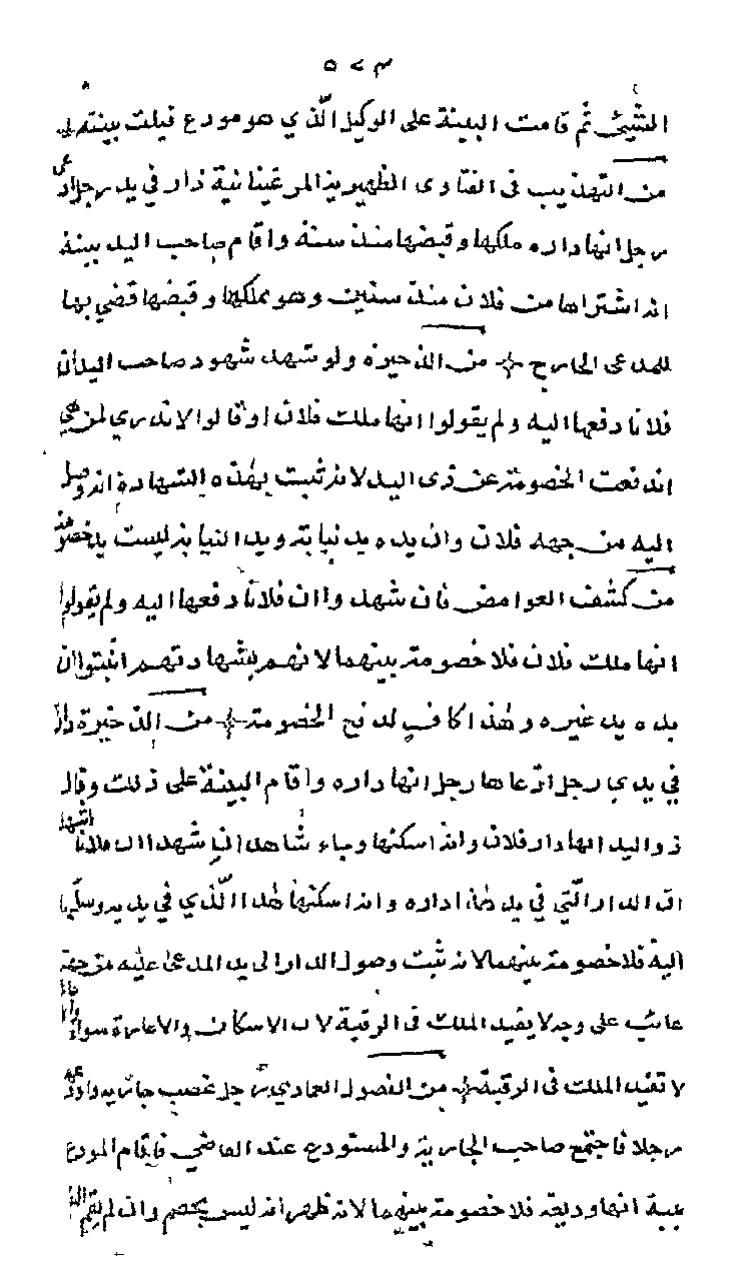 ٥٧٣
الشيئ ثم قامت البينة على الوكيل الذي هو مودع قبلت بينته
من التهذيب فى الفتاوى الظهيرية المرغينانية دار في يد رجل اد عى
رجل انها داره ملكها وقبضها منذ سنة واقام صاحب اليد بينة
انه اشتراها من فلان منذ سنتين وهو يملكها وقبضها قضي بها
للمدعى الخارج من الذخيرة ولو شهد شهود صاحب اليد ان
فلانا دفعها اليه ولم يقولوا انها ملك فلان او قالوا لا ندري لمن هي
اندفعت الخصومة عن ذى اليد لانه ثبت بهذه الشهادة انه وصل
اليه من جهه فلان وان يده يد نيابة ويد النيابة ليست يد خصومة
من كشف الغوامض فان شهدوا ان فلانا دفعها اليه ولم يقولوا
انها ملك فلان فلا خصومة بينهما لانهم بشهادتهم اثبتوا ان
يده يد غيره وهذا كاف لدفع الخصومة من الذخيرة دار
في يدي رجل ادعاها رجل انها داره واقام البينة على ذلك وقال
ذو اليد انها دار فلان وانه اسكنها وجاء شاهدان شهدا ان فلانا اشهدنا
ان الدار التي في يد هذا داره وانه اسكنها هذا الذي في يديه وسلمها
اليه فلا خصومة بينهما لانه ثبت وصول الدار الى يد المدعى عليه من جهة
غائب على وجه لا يفيد الملك فى الرقبة لان الاسكان والاعارة سواء
لا تفيد الملك فى الرقبة من الفصول العمادي رجل غصب جارية واودعه
رجلا فاجتمع صاحب الجارية والمستودع عند القاضي فاقام المودع
بينة انها وديعة فلا خصومة بينهما لانه ظهر انه ليس بخصم وان لم يقم